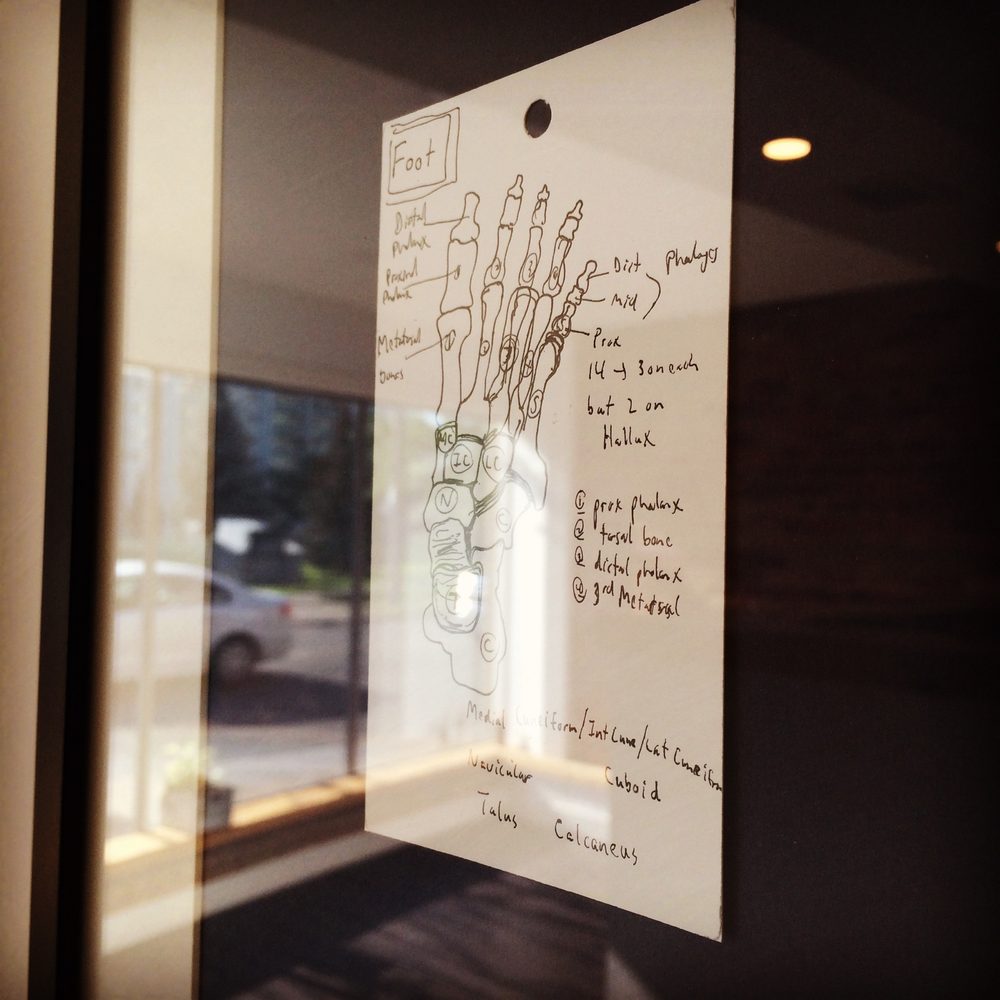 Foot
Distal
phalanx
Proximal
phalanx
Metatarsal
bones
Dist
Mid
Phalanges
Prox
14 → 3 on each
but 2 on
Hallux
MC
IC
LC
N
C
C
① prox phalanx
② tarsal bone
③ distal phalanx
④ 3rd Metatarsal
Medial Cuneiform/Int Cune/Lat Cuneiform
Navicular
Cuboid
Talus
Calcaneus